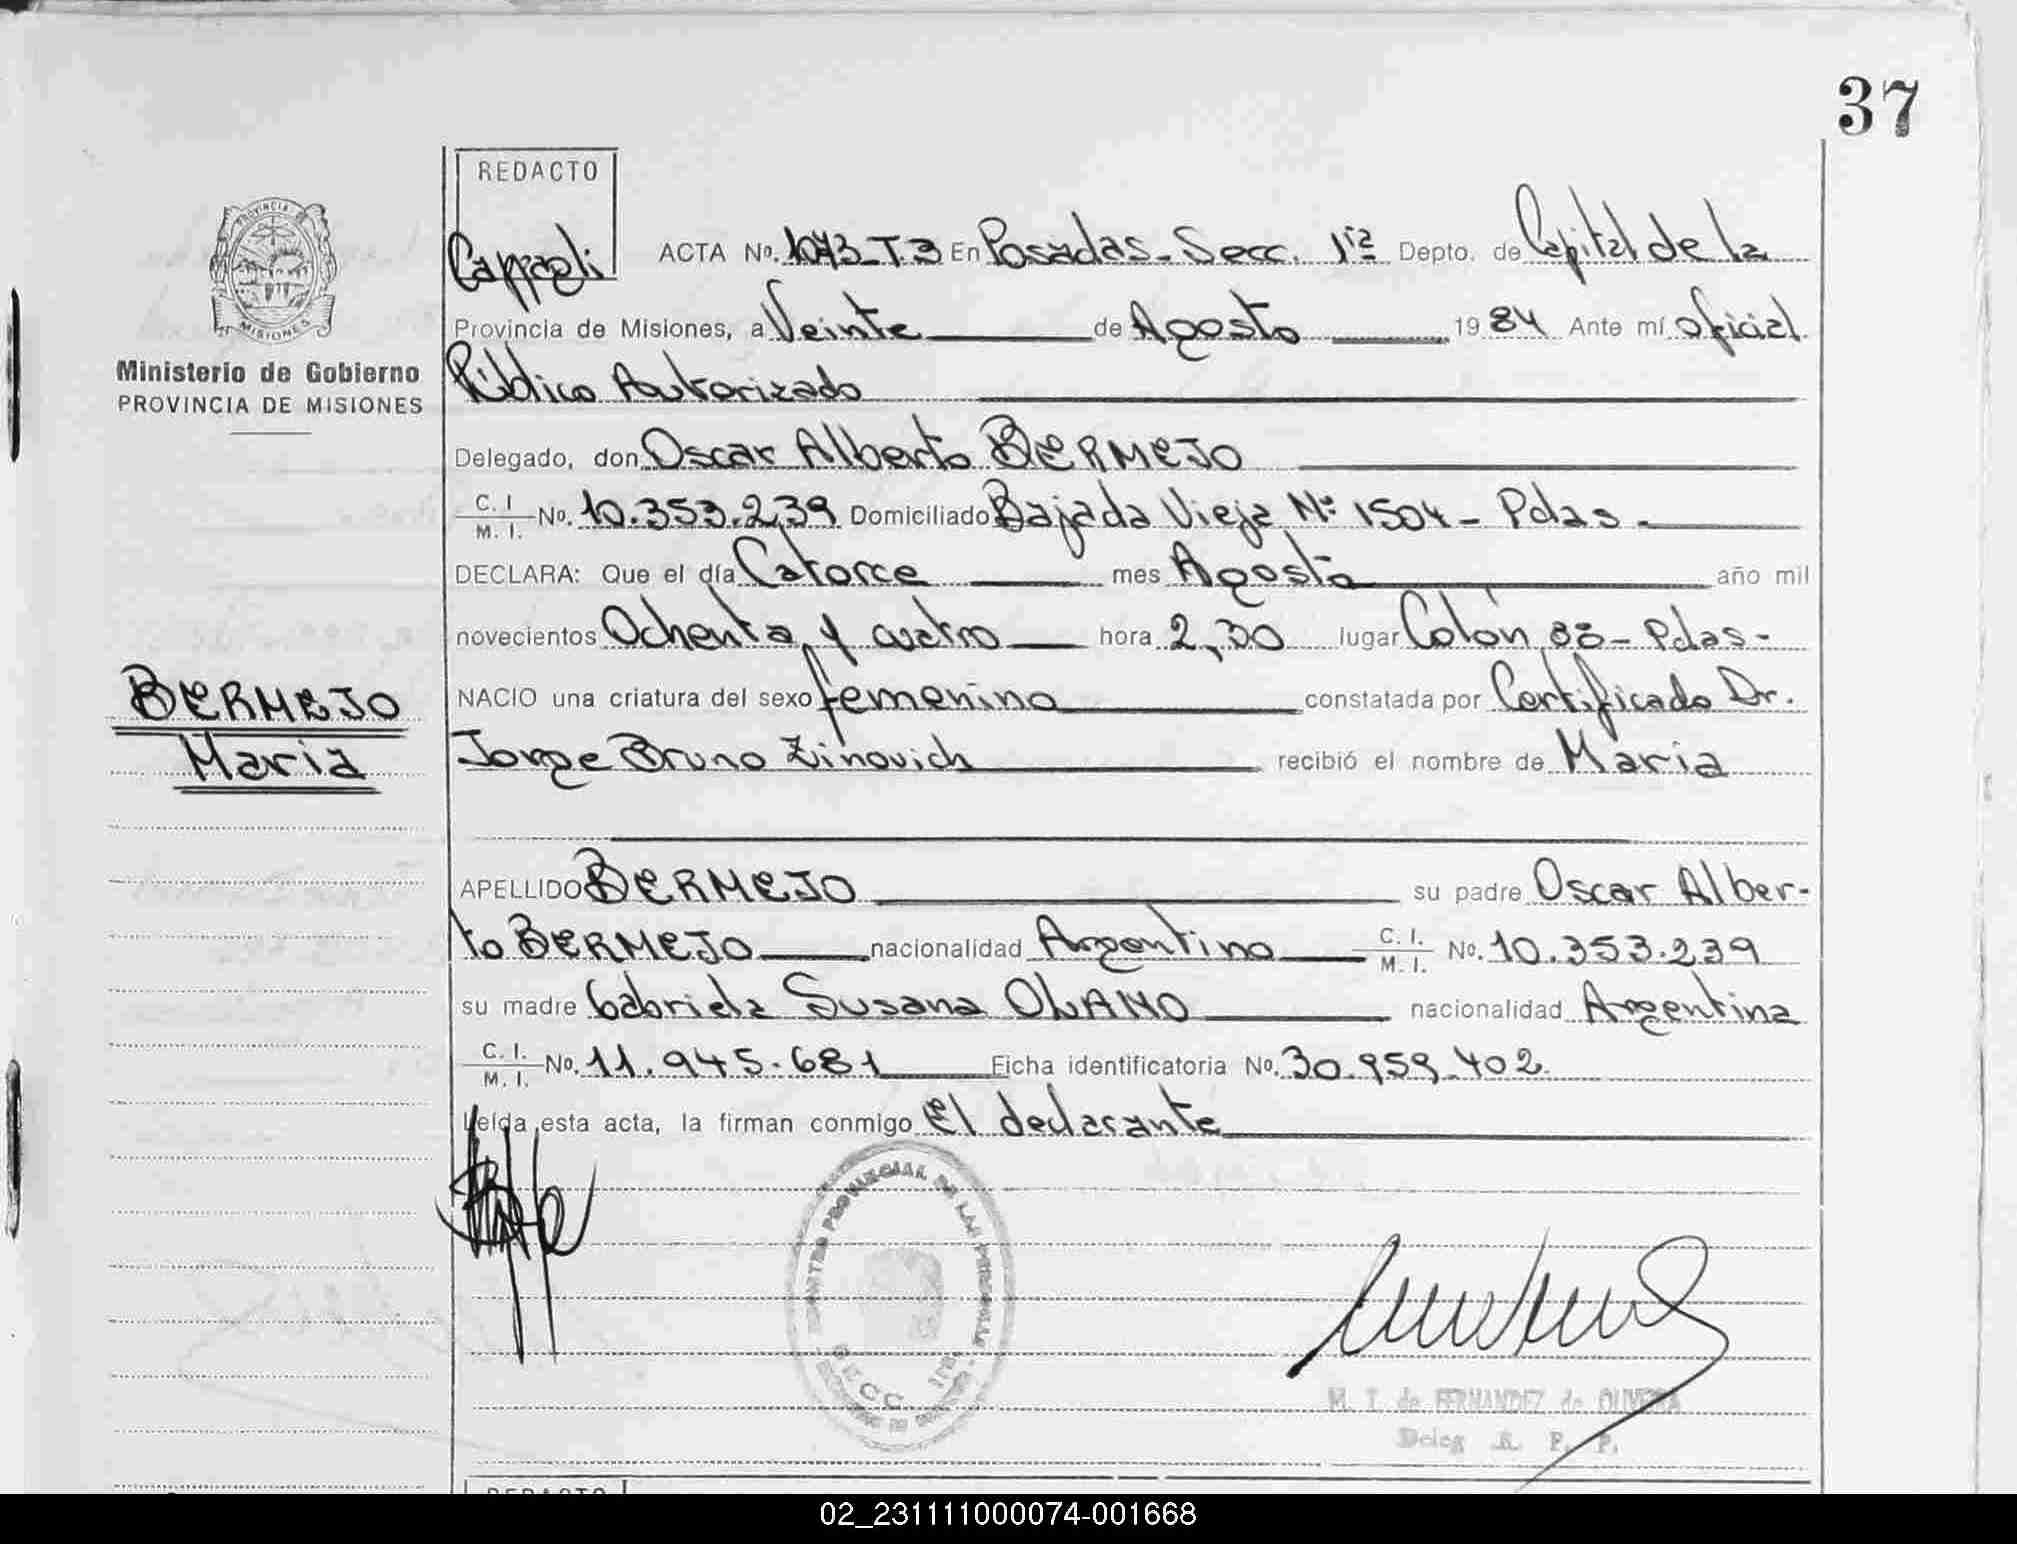 37
REDACTO
Cappagli
PROVINCIA DE
MISIONES
Ministerio de Gobierno
PROVINCIA DE MISIONES
ACTA No. 1073-T.3 En Posadas - Secc. 1ra Depto. de Capital de la
Provincia de Misiones, a Veinte de Agosto 1984 Ante mí Oficial
Público Autorizado
Delegado, don Oscar Alberto BERMEJO
C. I. M. I. No. 10.353.239 Domiciliado Bajada Vieja Nº 1504 - Pdas -
DECLARA: Que el día Catorce mes Agosto año mil
novecientos Ochenta y cuatro hora 2,30 lugar Colón 88 - Pdas -
BERMEJO
Maria
NACIO una criatura del sexo femenino constatada por Certificado Dr.
Jorge Bruno Zinovich recibió el nombre de Maria
APELLIDO BERMEJO su padre Oscar Alber-
to BERMEJO nacionalidad Argentino C. I. M. I. No. 10.353.239
su madre Gabriela Susana OLANO nacionalidad Argentina
C. I. M. I. No. 11.945.681 Ficha identificatoria No. 30.959.402
Leída esta acta, la firman conmigo El declarante
REGISTRO PROVINCIAL DE LAS PERSONAS
SECC. 1RA.
M. T. de FERNANDEZ de OLIVEIRA
Deleg R. P. P.
REDACTO
02_231111000074-001668